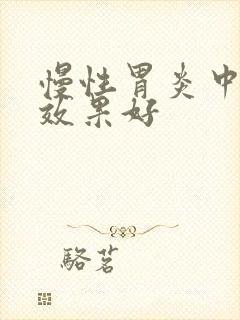 慢性胃炎中
效果好
骆茗